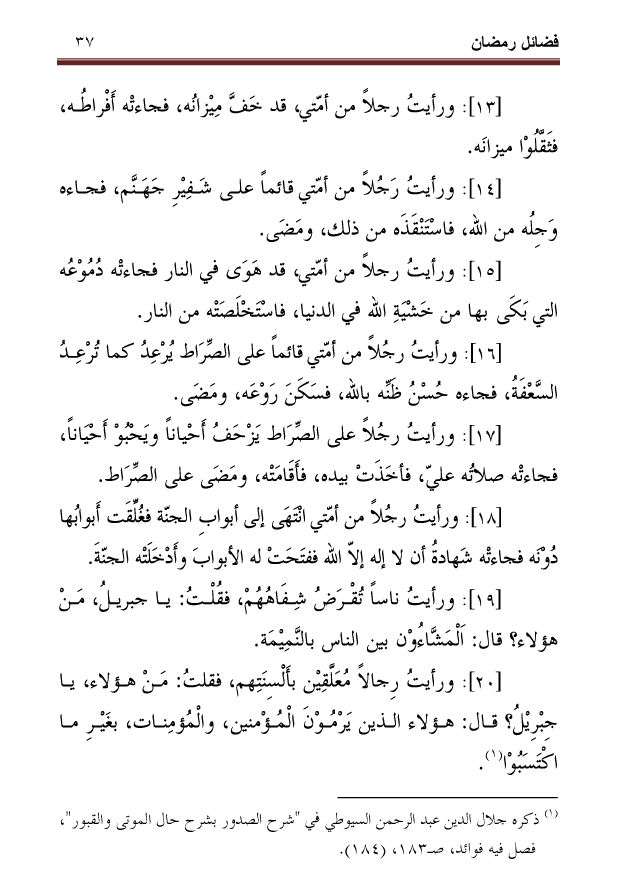 فضائل رمضان ٣٧
[١٣]: ورأيتُ رجلاً من أمّتي، قد خَفَّ مِيْزانُه، فجاءتْه أَفْراطُـه،
فثَقَّلُوْا ميزانَه.
[١٤]: ورأيتُ رَجُلاً من أمّتي قائماً علـى شَـفِيْرِ جَهَـنَّم، فجـاءه
وَجِلُه من الله، فاسْتَنْقَذَه من ذلك، ومَضَى.
[١٥]: ورأيتُ رجلاً من أمّتي، قد هَوَى في النار فجاءتْه دُمُوْعُه
التي بَكَى بها من خَشْيَةِ الله في الدنيا، فاسْتَخْلَصَتْه من النار.
[١٦]: ورأيتُ رجُلاً من أمّتي قائماً على الصِّرَاط يُرْعِدُ كما تُرْعِـدُ
السَّعْفَةُ، فجاءه حُسْنُ ظَنِّه بالله، فسَكَنَ رَوْعَه، ومَضَى.
[١٧]: ورأيتُ رجُلاً على الصِّرَاط يَزْحَفُ أَحْياناً ويَحْبُوْ أَحْيَاناً،
فجاءتْه صلاتُه عليّ، فأخَذَتْ بيده، فأَقَامَتْه، ومضَى على الصِّرَاط.
[١٨]: ورأيتُ رجُلاً من أمّتي انْتَهَى إلى أبواب الجنّة فغُلِّقَت أَبوابُها
دُوْنَه فجاءتْه شَهادةُ أن لا إله إلاّ الله ففتَحَتْ له الأبوابَ وأَدْخَلَتْه الجنّةَ.
[١٩]: ورأيتُ ناساً تُقْـرَضُ شِـفَاهُهُمْ، فقُلْـتُ: يـا جبريـلُ، مَـنْ
هؤلاء؟ قال: اَلْمَشَّاءُوْن بين الناس بالنَّمِيْمَة.
[٢٠]: ورأيتُ رِجالاً مُعَلَّقِيْن بأَلْسِنَتِهم، فقلتُ: مَـنْ هـؤلاء، يـا
جِبْرِيْلُ؟ قـال: هـؤلاء الـذين يَرْمُـوْنَ الْمُـؤْمنين، والْمُؤمِنـات، بغَيْـرِ مـا
اكْتَسَبُوْا(١).
(١) ذكره جلال الدين عبد الرحمن السيوطي في "شرح الصدور بشرح حال الموتى والقبور"،
فصل فيه فوائد، صـ١٨٣، (١٨٤).